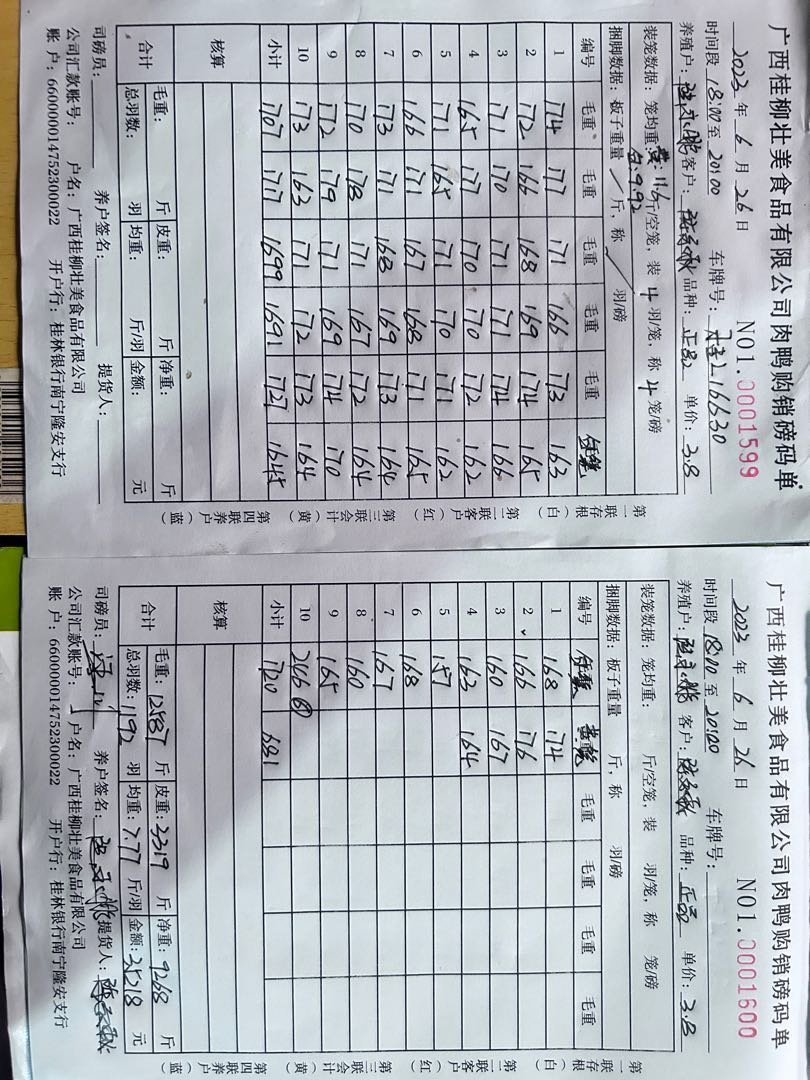 广西桂柳壮美食品有限公司肉鸭购销磅码单
2023 年 6 月 26 日 NO1.0001599
时间段 18:00 至 20:00 车牌号:
养殖户: 客户: 品种: 正品 单价: 3.8
装笼数据: 笼均重: 11.6 斤/空笼, 装 4 羽/笼, 称 4 笼/磅
9.92
捆脚数据: 板子重量 / 斤, 称 / 羽/磅
编号 毛重 毛重 毛重 毛重 毛重
1 174 177 171 166 173 163
2 172 166 168 169 174 165
3 171 170 171 171 174 166
4 165 171 170 170 172 162
5 171 165 171 170 171 162
6 166 171 167 168 171 165
7 173 171 168 169 173 164
8 170 178 171 167 172 164
9 172 179 171 169 174 170
10 173 163 171 172 173 164
小计 1707 1717 1699 1691 1727 1645
核算
合计 毛重: 斤 皮重: 斤 净重: 斤
总羽数: 羽 均重: 斤/羽 金额: 元
司磅员: 养户签名: 提货人:
公司汇款账号: 户名: 广西桂柳壮美食品有限公司
账 户: 660000014752300022 开户行: 桂林银行南宁隆安支行
第一联存根(白) 第二联客户(红) 第三联会计(黄) 第四联养户(蓝)
广西桂柳壮美食品有限公司肉鸭购销磅码单
2023 年 6 月 26 日 NO1.0001600
时间段 18:00 至 20:00 车牌号:
养殖户: 客户: 品种: 正品 单价: 3.8
装笼数据: 笼均重: 斤/空笼, 装 羽/笼, 称 笼/磅
捆脚数据: 板子重量 斤, 称 羽/磅
编号 毛重 毛重 毛重 毛重
1 168 174
2 166 176
3 160 167
4 163 164
5 157
6 168
7 167
8 160
9 165
10 246 ⑥
小计 1720 681
核算
合计 毛重: 12587 斤 皮重: 3319 斤 净重: 9268 斤
总羽数: 1192 羽 均重: 7.77 斤/羽 金额: 35218 元
司磅员: 养户签名: 提货人:
公司汇款账号: 户名: 广西桂柳壮美食品有限公司
账 户: 660000014752300022 开户行: 桂林银行南宁隆安支行
第一联存根(白) 第二联客户(红) 第三联会计(黄) 第四联养户(蓝)